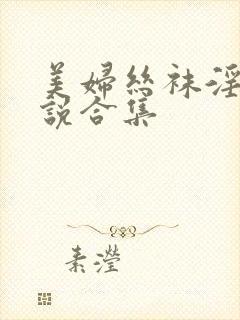 美婦絲袜淫
說合集
素瀅